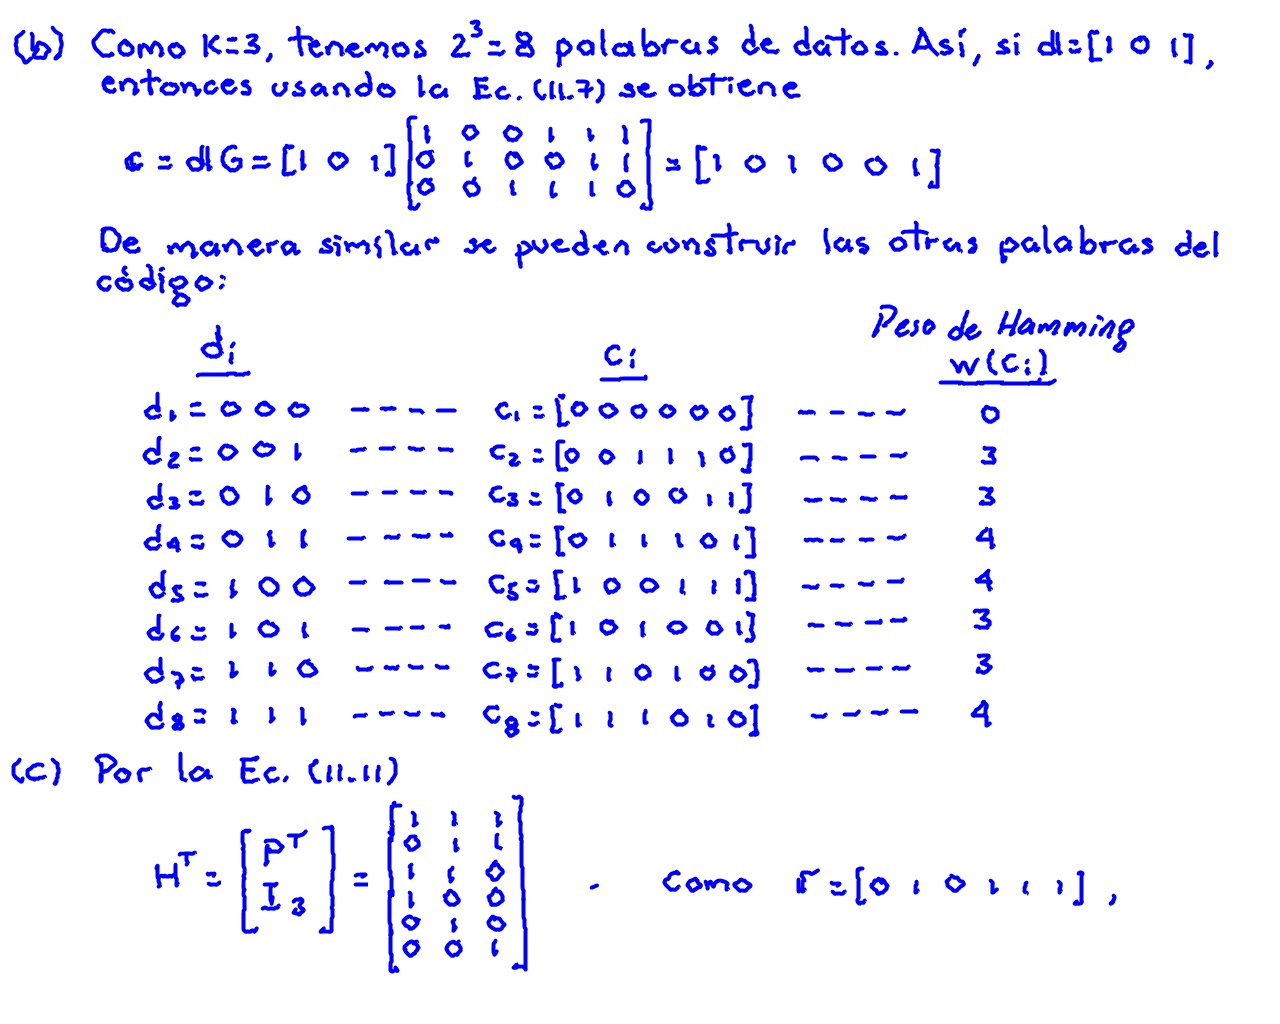 (b) Como K=3, tenemos 2³=8 palabras de datos. Así, si d=[1 0 1],
entonces usando la Ec. (11.7) se obtiene
c = dG = [1 0 1] [1 0 0 1 1 1; 0 1 0 0 1 1; 0 0 1 1 1 0] = [1 0 1 0 0 1]
De manera similar se pueden construir las otras palabras del
código:
Peso de Hamming
di ci w(ci)
d1 = 0 0 0 ---- c1 = [0 0 0 0 0 0] ---- 0
d2 = 0 0 1 ---- c2 = [0 0 1 1 1 0] ---- 3
d3 = 0 1 0 ---- c3 = [0 1 0 0 1 1] ---- 3
d4 = 0 1 1 ---- c4 = [0 1 1 1 0 1] ---- 4
d5 = 1 0 0 ---- c5 = [1 0 0 1 1 1] ---- 4
d6 = 1 0 1 ---- c6 = [1 0 1 0 0 1] ---- 3
d7 = 1 1 0 ---- c7 = [1 1 0 1 0 0] ---- 3
d8 = 1 1 1 ---- c8 = [1 1 1 0 1 0] ---- 4
(c) Por la Ec. (11.11)
Hᵀ = [Pᵀ; I3] = [1 1 1; 0 1 1; 1 1 0; 1 0 0; 0 1 0; 0 0 1] . Como r = [0 1 0 1 1 1],